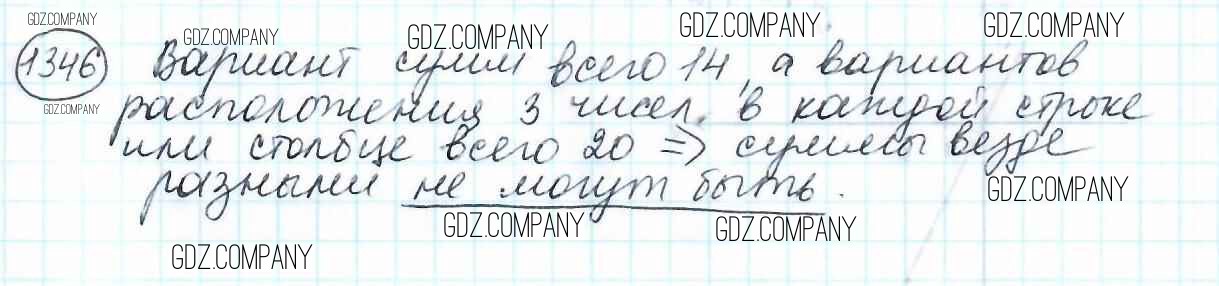 GDZ.COMPANY GDZ.COMPANY GDZ.COMPANY GDZ.COMPANY GDZ.COMPANY
1346 Вариант сумм всего 14, а вариантов
GDZ.COMPANY
расположения 3 чисел в каждой строке
или столбце всего 20 => суммы везде
разными не могут быть.
GDZ.COMPANY
GDZ.COMPANY GDZ.COMPANY
GDZ.COMPANY